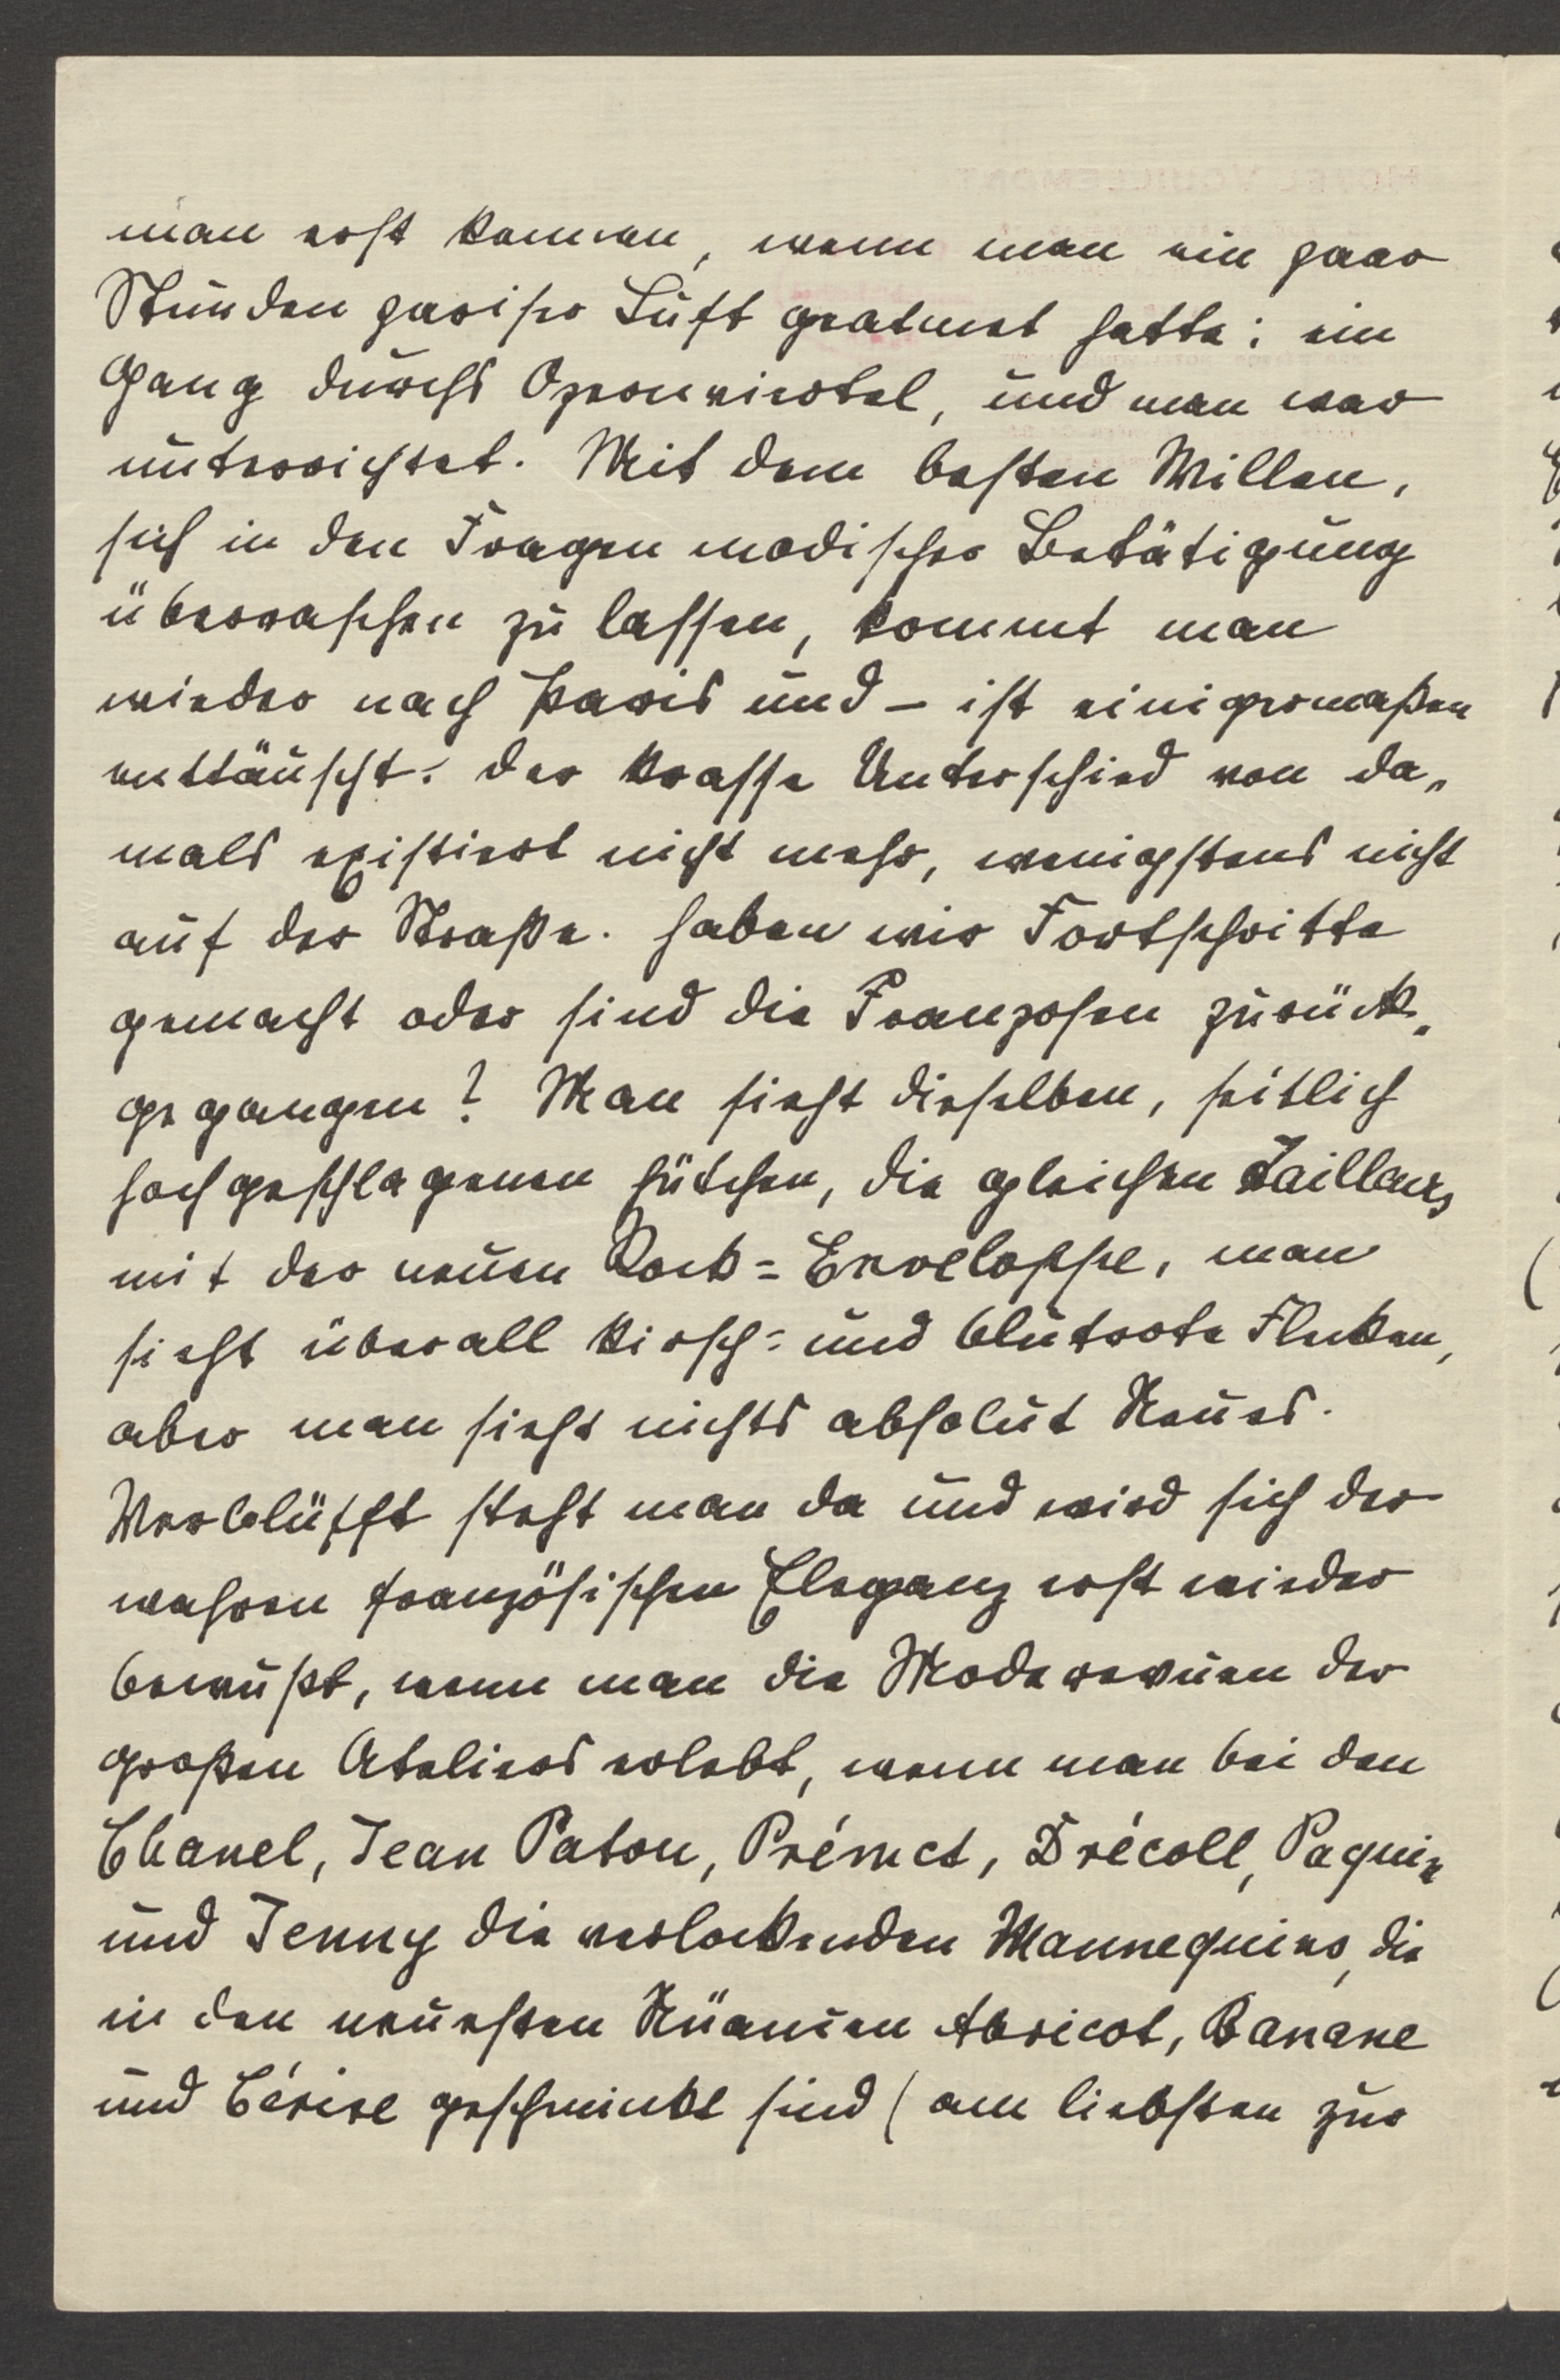 man erst kennen, wenn man ein paar
Stunden pariser Luft geatmet hatte; ein
Gang durchs Opernviertel, und man war
unterrichtet. Mit dem besten Willen,
sich in den Fragen modischer Betätigung
überraschen zu lassen, kommt man
wieder nach Paris und – ist einigermaßen
enttäuscht: der krasse Unterschied von da„
mals existiert nicht mehr, wenigstens nicht
auf der Straße. Haben wir Fortschritte
gemacht oder sind die Franzosen zurück„
gegangen? Man sieht dieselben, seitlich
hochgeschlagenen Hütchen, die gleichen Tailleurs
mit der neuen Rock-Enveloppe, man
sieht überall kirsch- und blutrote Flecken,
aber man sieht nichts absolut Neues.
Verblüfft steht man da und wird sich der
wahren französischen Eleganz erst wieder
bewußt, wenn man die Moderevuen der
großen Ateliers erlebt, wenn man bei den
Chanel, Jean Patou, Prémet, Drécoll, Paquin
und Jenny die verlockenden Mannequins, die
in den neuesten Nüancen Abricot, Banane
und Cérise geschminkt sind (am liebsten zur